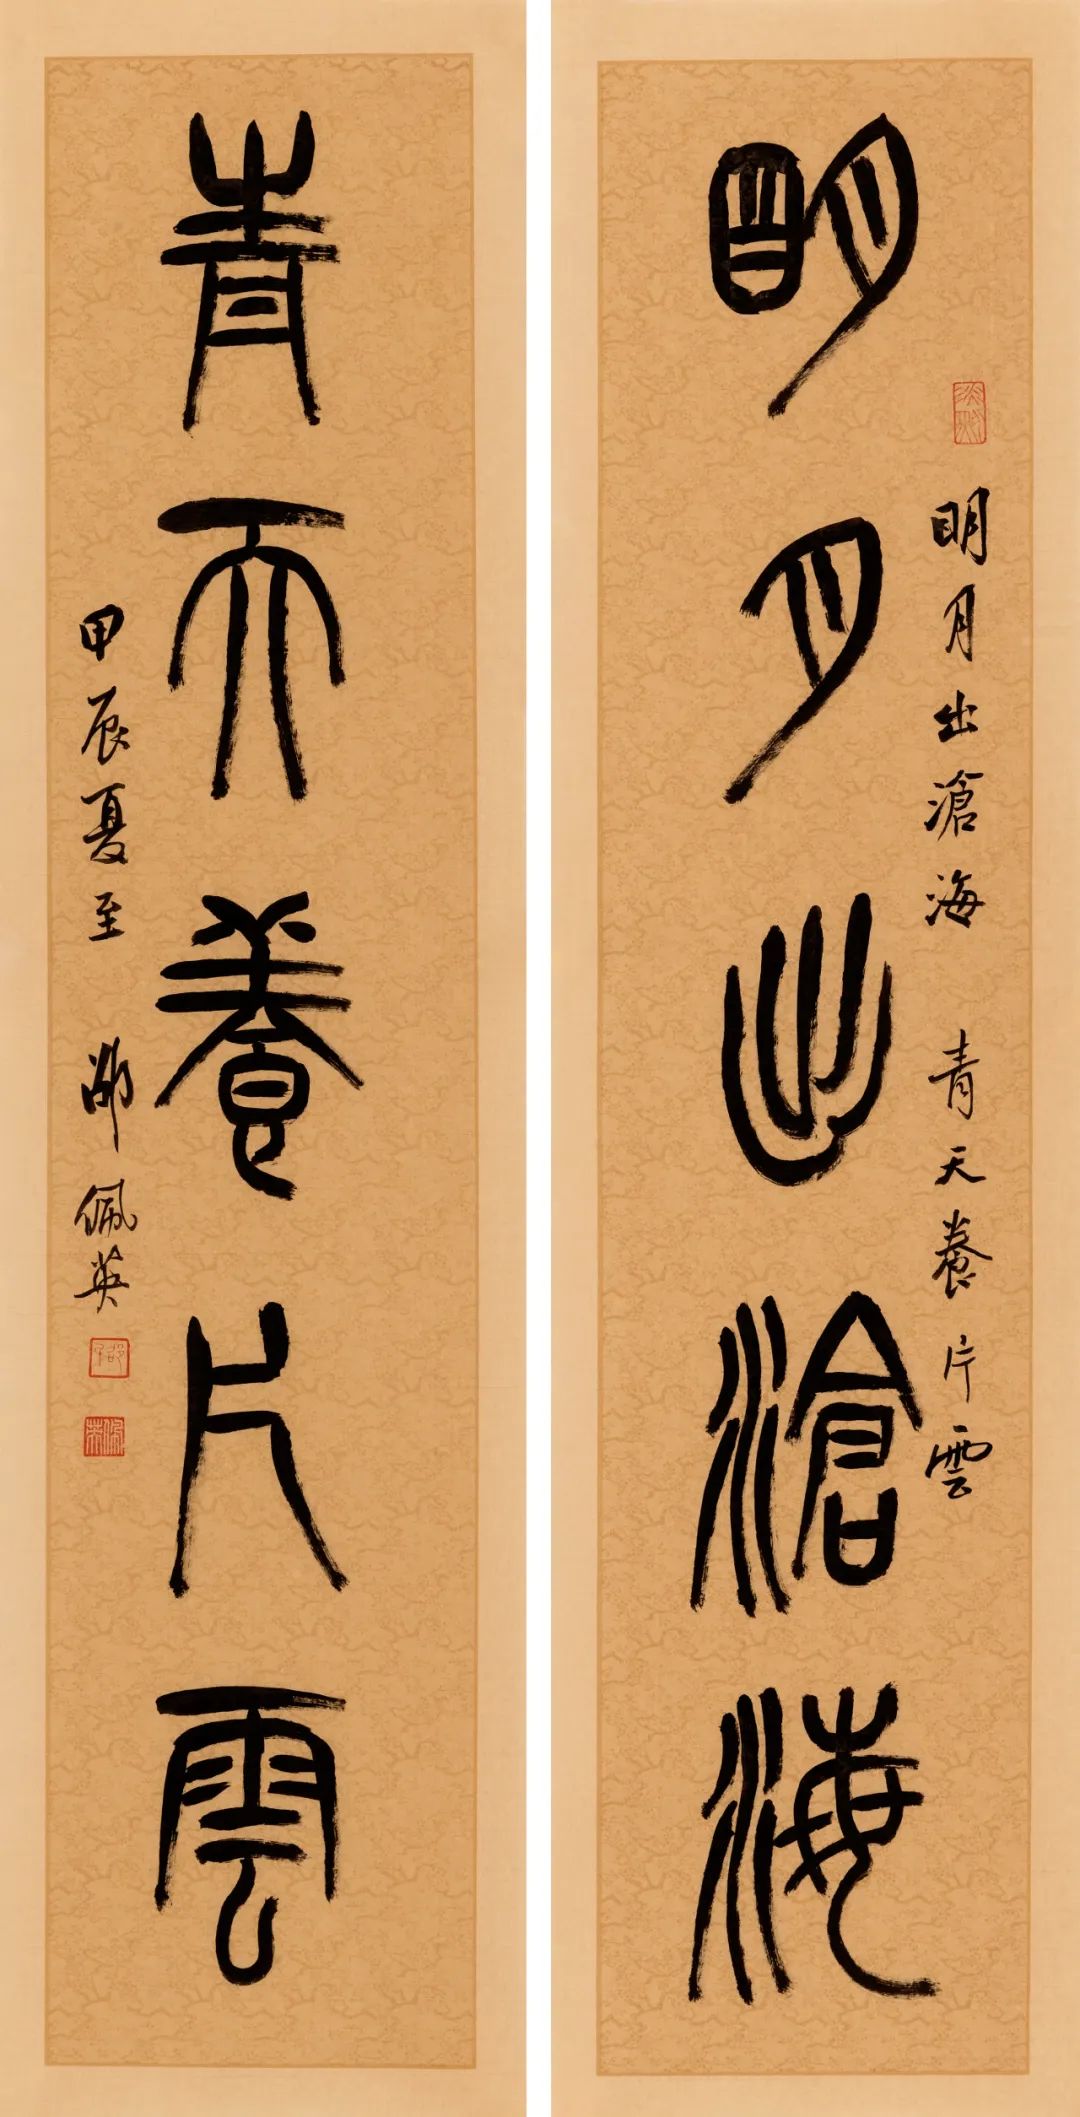 明月出滄海
明月出滄海 青天養片雲
青天養片雲
甲辰夏至 邵佩英